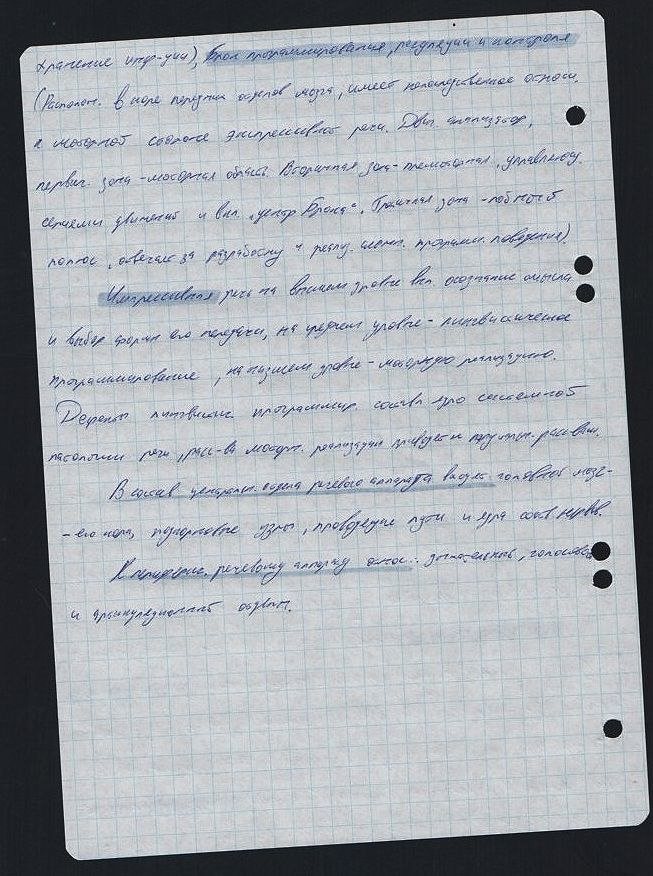 хранение инф-ции), Блок программирования, регуляции и контроля
(Располож. в коре передних отделов мозга, имеет непосредственное относи.
к моторной стороне экспрессивной речи. Двиг. анализатор,
первич. зона - моторная область. Вторичная зона - премоторная, управляющ.
сериями движений и вкл. „центр Брока“. Третичная зона - лобный
полюс, отвечает за разработку и реализ. програми. поведения).
Импрессивная речь на высшем уровне вкл. осознание смысла
и выбор формы его передачи, на среднем уровне - лингвистическое
программирование, на низшем уровне - моторную реализацию.
Дефекты лингвистич. программир. состав. ядро системной
патологии речи, расс-ва моторн. реализации приводят к
В состав центральн. отдела речевого аппарата входит головной мозг -
- его кора, подкорковые узлы, проводящие пути и ядра соотв. нервов.
К периферич. речевому аппарату относ.: дыхательный, голосовой
и артикуляционный отделы.